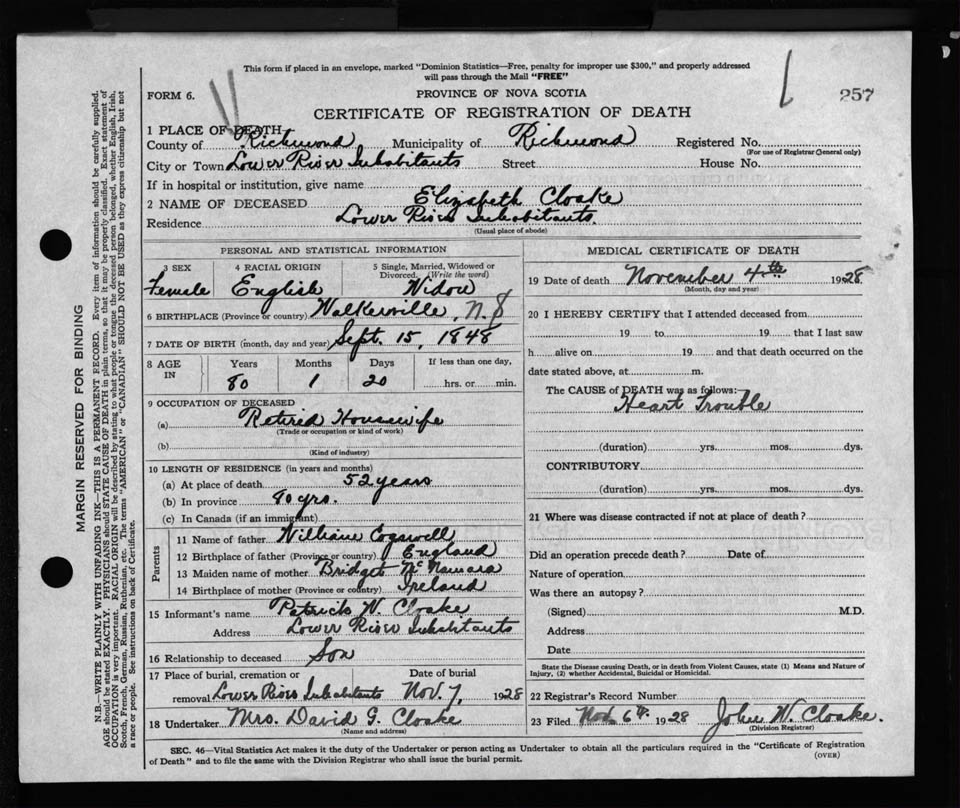 This form if placed in an envelope, marked "Dominion Statistics—Free, penalty for improper use $300," and properly addressed
will pass through the Mail "FREE"
FORM 6.
PROVINCE OF NOVA SCOTIA
257
CERTIFICATE OF REGISTRATION OF DEATH
1 PLACE OF DEATH
County of Richmond Municipality of Richmond Registered No.
(For use of Registrar General only)
City or Town Lower River Inhabitants Street House No.
If in hospital or institution, give name
2 NAME OF DECEASED Elizabeth Cloake
Residence Lower River Inhabitants.
(Usual place of abode)
PERSONAL AND STATISTICAL INFORMATION
3 SEX 4 RACIAL ORIGIN 5 Single, Married, Widowed or
Divorced. (Write the word)
Female English Widow
6 BIRTHPLACE (Province or country) Walkerville, N.S
7 DATE OF BIRTH (month, day and year) Sept. 15, 1848
8 AGE IN Years Months Days If less than one day,
80 1 20 hrs. or min.
9 OCCUPATION OF DECEASED
(a) Retired Housewife
(Trade or occupation or kind of work)
(b)
(Kind of industry)
10 LENGTH OF RESIDENCE (in years and months)
(a) At place of death 52 years
(b) In province 80 yrs.
(c) In Canada (if an immigrant)
Parents
11 Name of father William Cogswell
12 Birthplace of father (Province or country) England
13 Maiden name of mother Bridget McNamara
14 Birthplace of mother (Province or country) Ireland
15 Informant's name Patrick W. Cloake
Address Lower River Inhabitants
16 Relationship to deceased Son
17 Place of burial, cremation or Date of burial
removal Lower River Inhabitants Nov. 7, 1928
18 Undertaker Mrs. David G. Cloake
(Name and address)
MEDICAL CERTIFICATE OF DEATH
19 Date of death November 4th 1928
(Month, day and year)
20 I HEREBY CERTIFY that I attended deceased from
19 to 19 that I last saw
h alive on 19 and that death occurred on the
date stated above, at m.
The CAUSE of DEATH was as follows:
Heart Trouble
(duration) yrs. mos. dys.
CONTRIBUTORY
(duration) yrs. mos. dys.
21 Where was disease contracted if not at place of death?
Did an operation precede death? Date of
Nature of operation
Was there an autopsy?
(Signed) M.D.
Address
Date
State the Disease causing Death, or in death from Violent Causes, state (1) Means and Nature of
Injury, (2) whether Accidental, Suicidal or Homicidal.
22 Registrar's Record Number
23 Filed Nov. 6th 1928 John W. Cloake.
(Division Registrar)
SEC. 46—Vital Statistics Act makes it the duty of the Undertaker or person acting as Undertaker to obtain all the particulars required in the "Certificate of Registration
of Death" and to file the same with the Division Registrar who shall issue the burial permit.
(OVER)
MARGIN RESERVED FOR BINDING
N.B.—WRITE PLAINLY WITH UNFADING INK—THIS IS A PERMANENT RECORD. Every item of information should be carefully supplied.
AGE should be stated EXACTLY. PHYSICIANS should STATE CAUSE OF DEATH in plain terms, so that it may be properly classified. Exact statement of
OCCUPATION is very important. RACIAL ORIGIN will be described by stating to what people or tongue the deceased person belonged, whether English, Irish,
Scotch, French, German, Russian, Ruthenian, etc. The terms "AMERICAN" or "CANADIAN" SHOULD NOT BE USED as they express citizenship but not
a race or people. See instructions on back of Certificate.